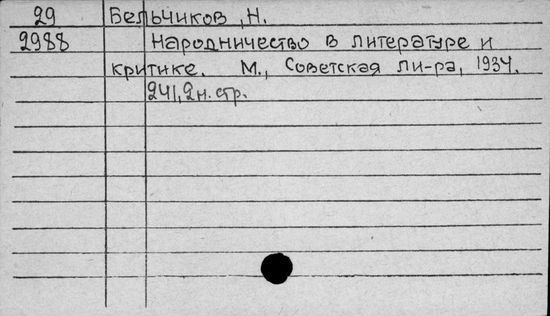 29 Бельчиков, Н.
2988 Народничество в литературе и
критике. М., Советская ли-ра, 1934.
241, 2н. стр.